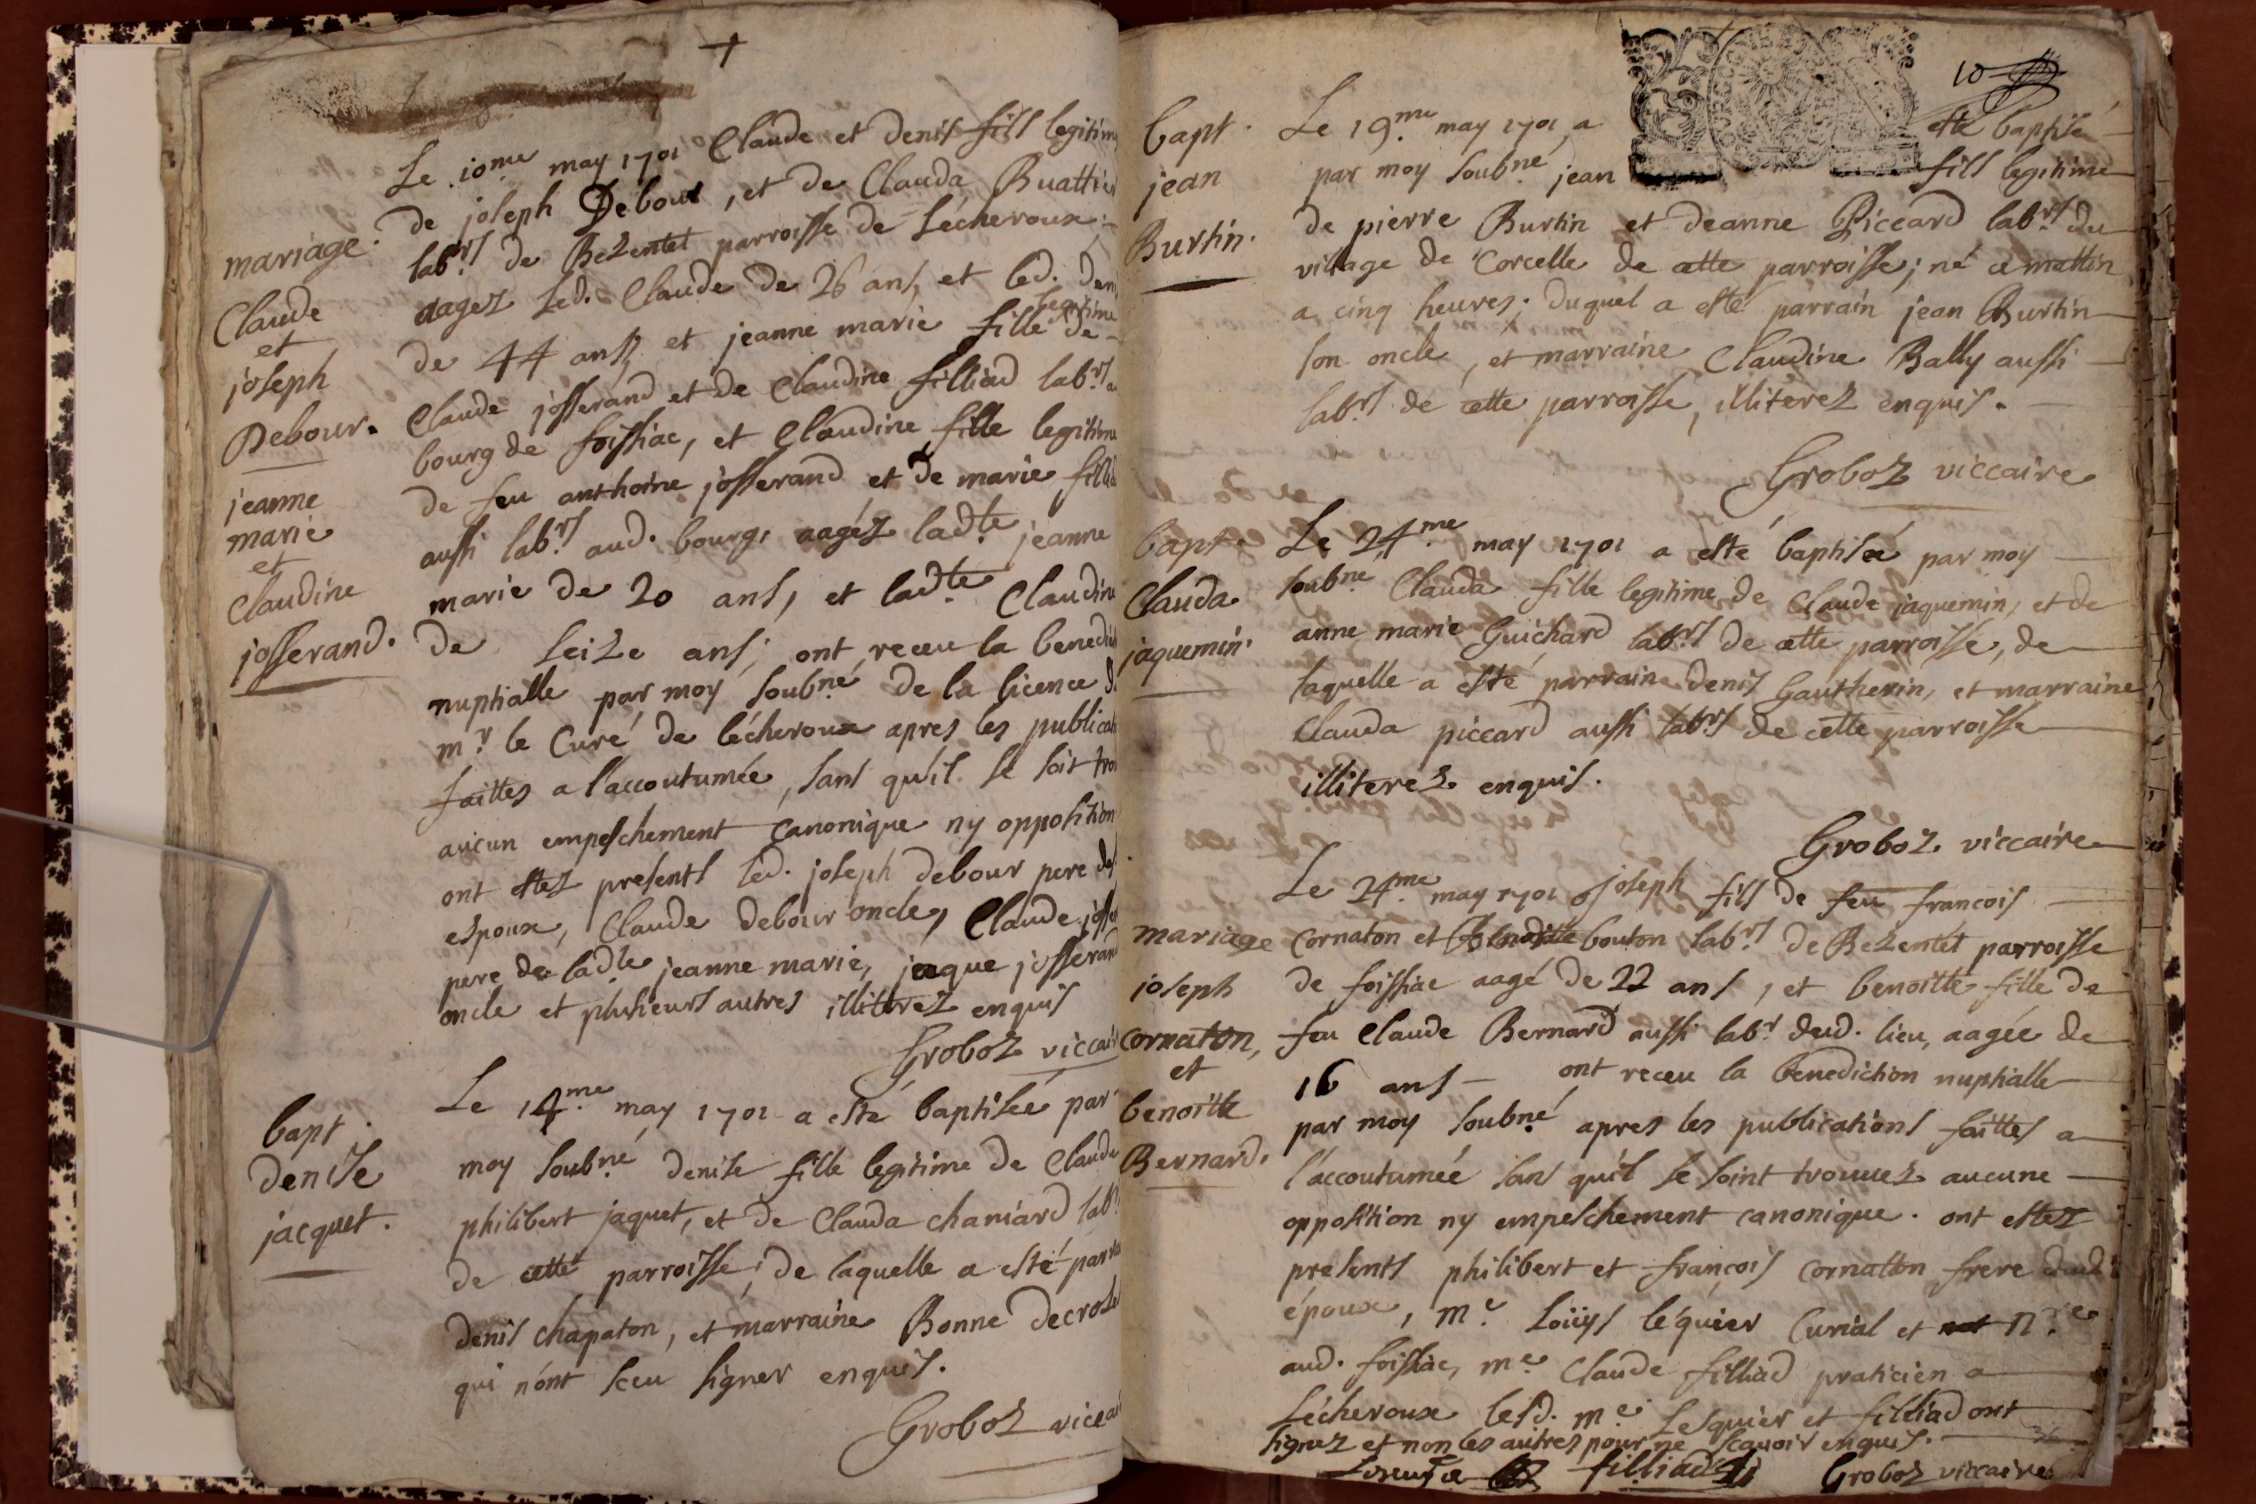 mariage.
Claude
et
joseph
Debour.
jeanne
marie
et
Claudine
josserand.
Le 10me may 1701 Claude et denis fils legitim
de joseph Debour, et de Clauda Buattie
labrs de Bezentet parroisse de Lécheroux;
aagez led. Claude de 26 ans, et led. den
de 44 ans, et jeanne marie fille legitime de
Claude josserand et de Claudine filliad labrs a
bourg de foissiac, et Claudine fille legitime
de feu anthoine josserand et de marie fillia
aussi labrs aud. bourg, aagéz ladte jeanne
marie de 20 ans, et ladte Claudine
de seize ans; ont receu la benedi
nuptialle par moy soubné de la licence d
mr le Curé de lécheroux apres les publicat
faittes a l'accoutumée, sans qu'il se soit tro
aucun empeschement canonique ny opposition
ont estez presents led. joseph debour pere des
espoux, Claude debour oncle, Claude josser
pere de ladte jeanne marie, jaque josserand
oncle et plusieurs autres illiterez enquis
Groboz viccai
bapt.
denise
jacquet.
Le 14me may 1701 a esté baptisée par
moy soubné denise fille legitime de Claude
philibert jaquet, et de Clauda chaniard labrs
de cette parroisse; de laquelle a esté parra
denis chapaton, et marraine Bonne decroze
qui n'ont sceu signer enquis.
Groboz vicca
10
bapt.
jean
Burtin.
Le 19me may 1701 a esté baptisé
par moy soubné jean fils legitime
de pierre Burtin et deanne Piccard labrs du
village de Corcelle de cette parroisse; né ce mattin
a cinq heures; duquel a esté parrain jean Burtin
son oncle, et marraine Claudine Bally aussi
labrs de cette parroisse, illiterez enquis.
Groboz viccaire
bapt.
Clauda
jaquemin.
Le 24me may 1701 a esté baptisée par moy
soubné Clauda fille legitime de Claude jaquemin, et de
anne marie Guichard labrs de cette parroisse, de
laquelle a esté parrain denis Gautherin, et marraine
Clauda piccard aussi labrs de cette parroisse
illiterez enquis.
Groboz viccaire
mariage
joseph
cornaton,
et
benoitte
Bernard.
Le 24me may 1701 joseph fils de feu francois
Cornaton et Benoitte bouton labrs de Bezentet parroisse
de foissiac aagé de 22 ans, et benoitte fille de
feu Claude Bernard aussi labr dud. lieu, aagée de
16 ans ont receu la benediction nuptialle
par moy soubné apres les publications faittes a
l'accoutumée sans qu'il se soint trouuez aucune
opposition ny empeschement canonique. ont estez
presents philibert et françois cornatton frere dud
époux, me Loüys léquier Curial et nre
aud. foissiac, me Claude filliad praticien a
Lécheroux lesd. me Lesquier et filliad ont
signez et non les autres pour ne sçauoir enquis.
filliad Groboz viccaire